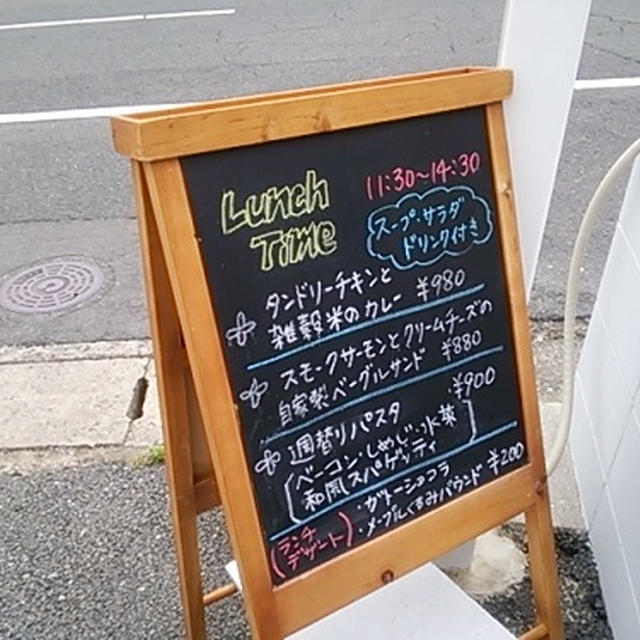 Lunch
Time
11:30~14:30
スープ・サラダ
ドリンク付き
タンドリーチキンと
雑穀米のカレー ¥980
スモークサーモンとクリームチーズの
自家製ベーグルサンド ¥880
週替りパスタ ¥900
(ベーコン・しめじ・水菜
和風スパゲッティ)
(ランチ
デザート)
・ガトーショコラ
・メープルくるみパウンド ¥200